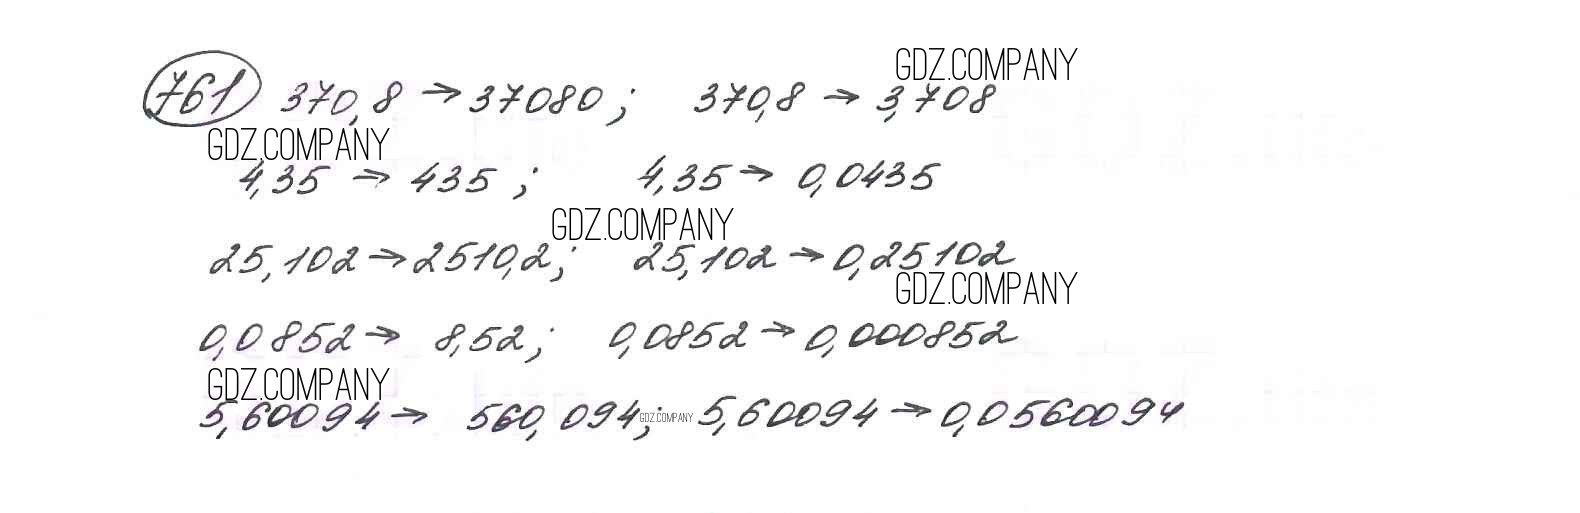 GDZ.COMPANY
761 370,8 → 37080; 370,8 → 3,708
GDZ.COMPANY
4,35 → 435; 4,35 → 0,0435
GDZ.COMPANY
25,102 → 2510,2; 25,102 → 0,25102
GDZ.COMPANY
0,0852 → 8,52; 0,0852 → 0,000852
GDZ.COMPANY
5,60094 → 560,094; GDZ.COMPANY 5,60094 → 0,0560094